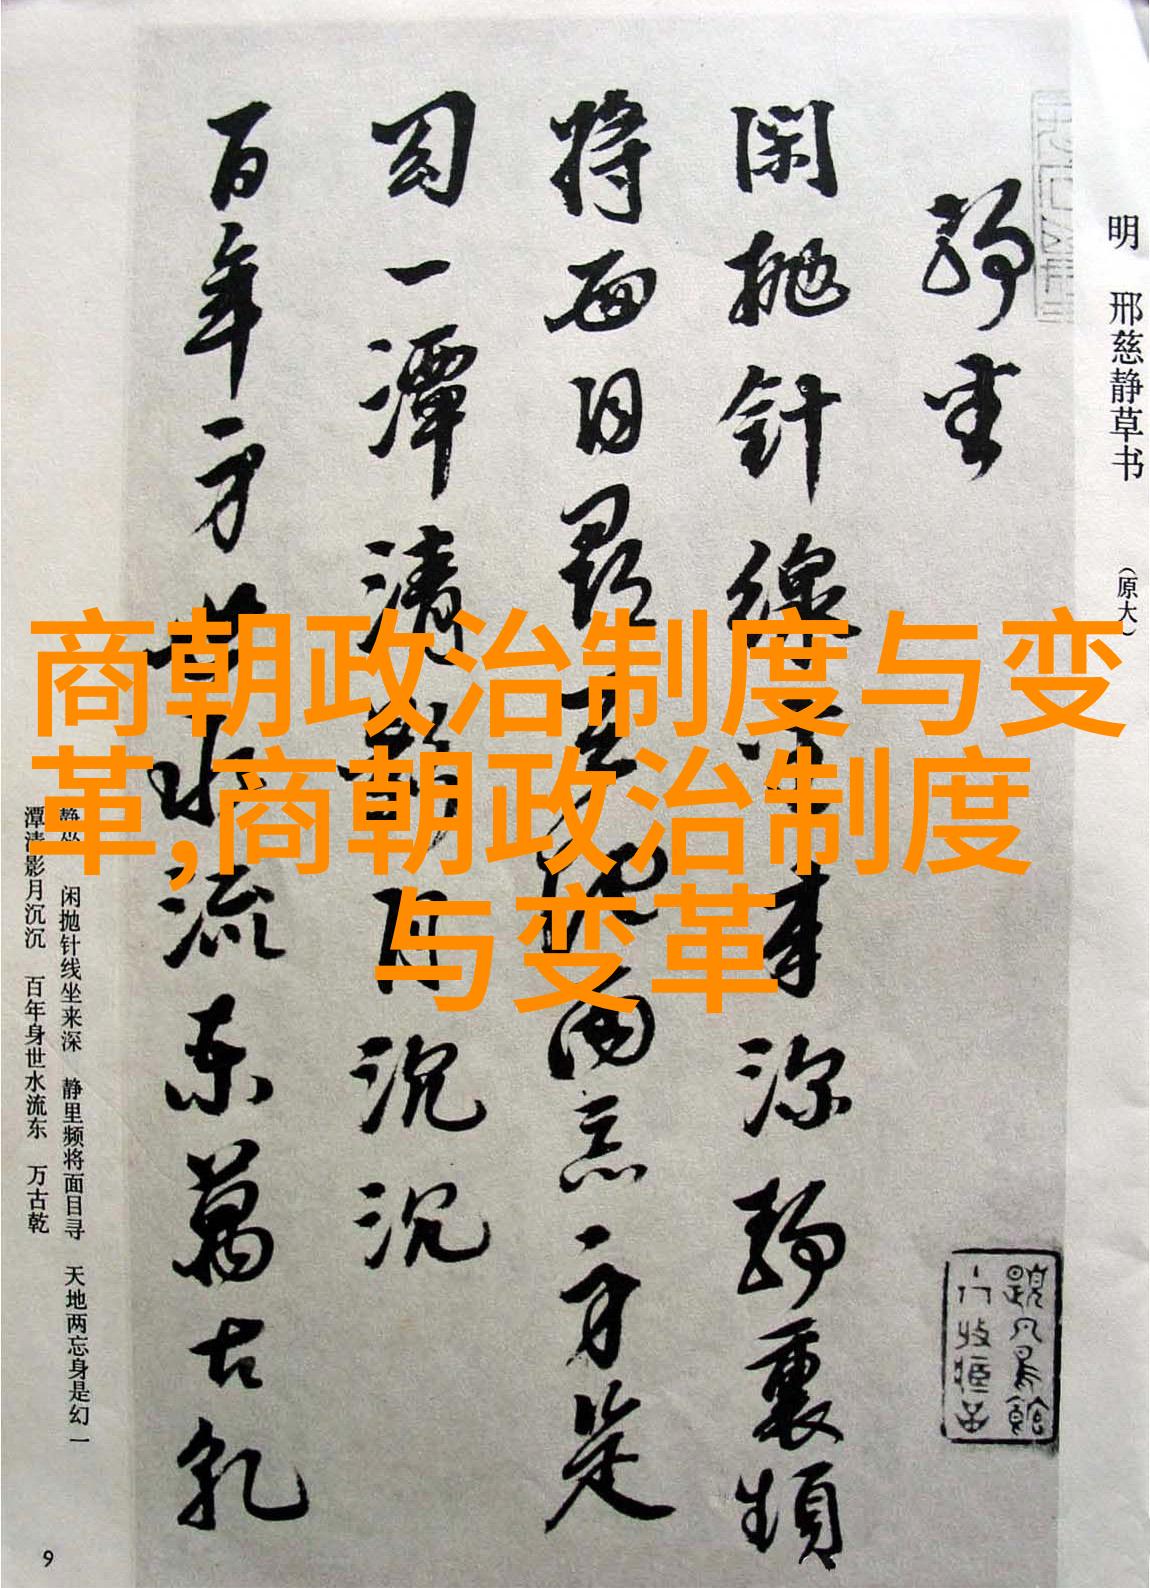 明 邢慈静草书 （原大）
静坐
闲抛针线坐来深静里频
将面目寻天地两忘身是
幻一潭清影月沉沉
百年身世水流东万古乾
静坐 闲抛针线坐来深 静里频将面目寻 天地两忘身是幻一
潭清影月沉沉 百年身世水流东 万古乾
9
商朝政治制度与变
革,商朝政治制度
与变革